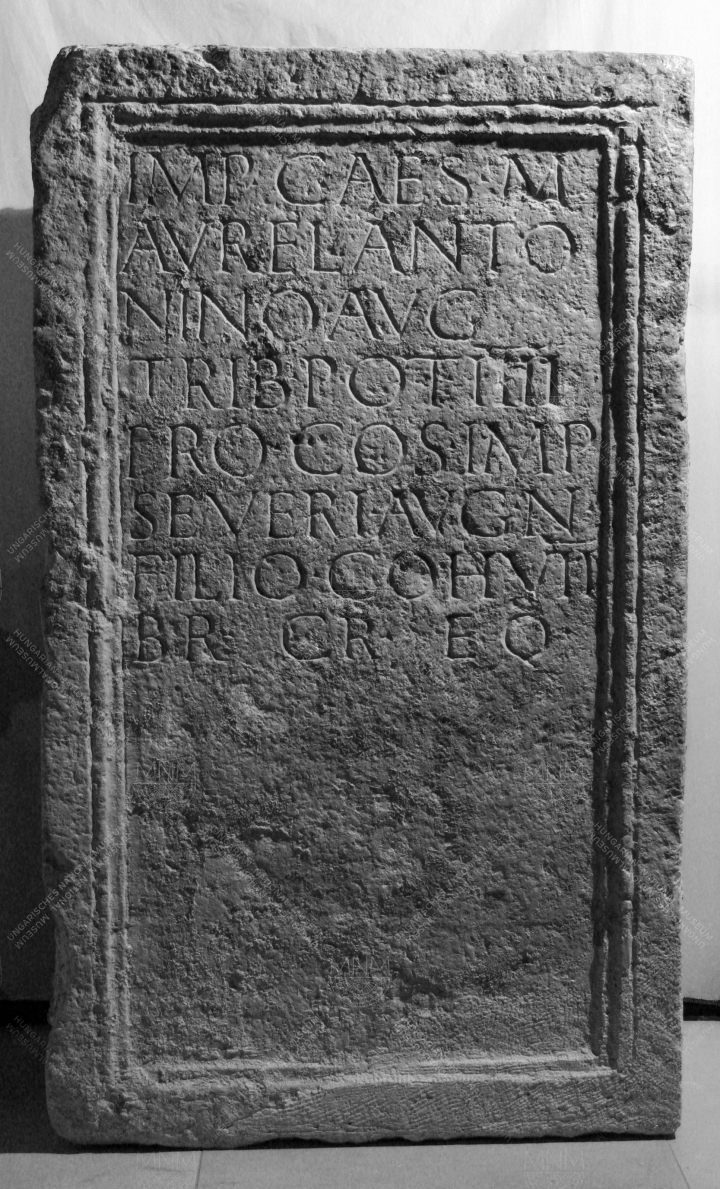 IMP · CAES · M
AVREL ANTO
NINO AVG
TRIB POT IIII
PRO · COS IMP
SEVERI · AVG N
FILIO · COH VII
BR · CR · EQ